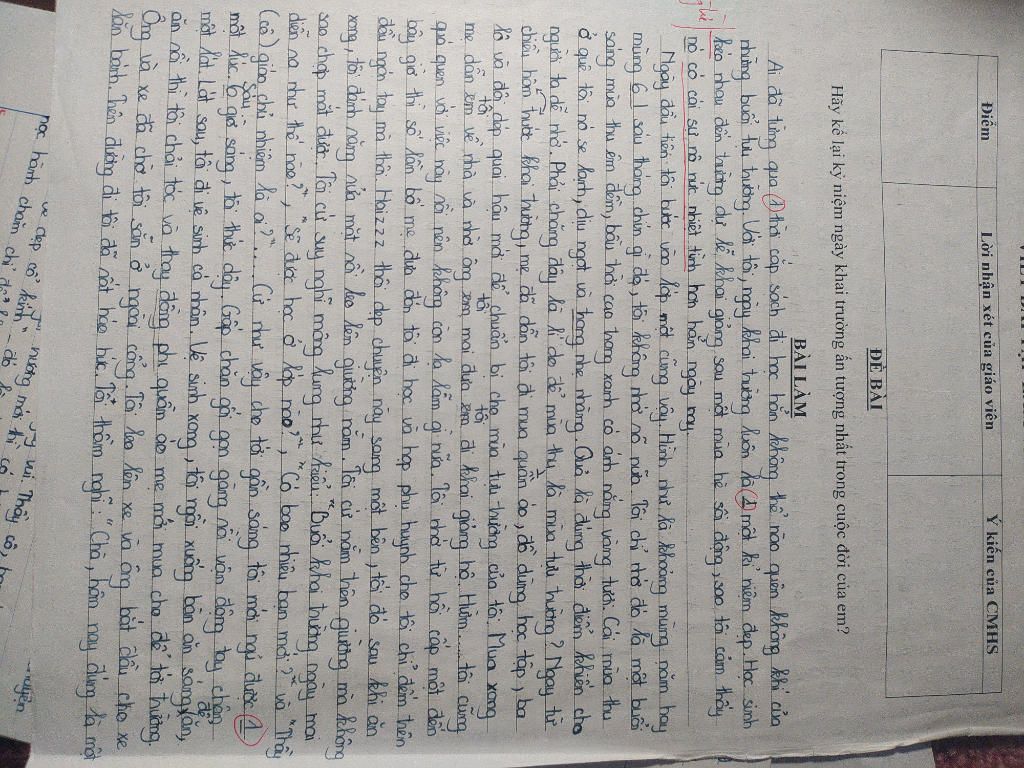 Điểm
Lời nhận xét của giáo viên
Ý kiến của CMHS
ĐỀ BÀI
Hãy kể lại kỷ niệm ngày khai trường ấn tượng nhất trong cuộc đời của em?
BÀI LÀM
Ai đã từng qua 1 thời cắp sách đi học hẳn không thể nào quên không khí của
những buổi tựu trường. Với tôi, ngày khai trường luôn là 1 một kỉ niệm đẹp. Học sinh
kéo nhau đến trường dự lễ khai giảng sau một mùa hè sôi động, sao tôi cảm thấy
nó có cái sự nô nức nhiệt tình hơn hẳn ngày nay.
Ngay đầu tiên tôi bước vào lớp một cũng vậy. Hình như là khoảng mùng năm hay
mùng 6 1 sáu tháng chín gì đó, tôi không nhớ rõ nữa. Tôi chỉ nhớ đó là một buổi
sáng mùa thu êm đềm, bầu trời cao trong xanh có ánh nắng vàng tươi. Cái mùa thu
ở quê tôi nó se lạnh, dịu ngọt và nhẹ nhàng. Quả là đúng thời điểm khiến cho
người ta dễ nhớ. Phải chăng đấy là lí do để mùa thu là mùa tựu trường? Ngay từ
chiều hôm trước khai trường, mẹ đã dẫn tôi đi mua quần áo, đồ dùng học tập, ba
lô và đôi dép quai hậu mới để chuẩn bị cho mùa tựu trường của tôi. Mua xong
mẹ dẫn em tôi về nhà và nhờ ông em tôi mai đưa em tôi đi khai giảng hộ. Hừm..... tôi cũng
quá quen với việc này rồi nên không còn lạ lẫm gì nữa. Tôi nhớ từ hồi cấp một đến
bây giờ thì số lần bố mẹ đưa đón tôi đi học và họp phụ huynh cho tôi chỉ đếm trên
đầu ngón tay mà thôi. Hazzz thôi dẹp chuyện này sang một bên, tối đó sau khi ăn
xong, tôi đánh răng rửa mặt rồi leo lên giường nằm. Tôi cứ nằm trên giường mà không
sao chợp mắt được. Tôi cứ suy nghĩ mông lung như kiểu: "Buổi khai trường ngày mai
diễn ra như thế nào?", "sẽ được học ở lớp nào", "Có bao nhiêu bạn mới?" và "thầy
(cô) giáo chủ nhiệm là ai?"..... Cứ như vậy cho tới gần sáng tôi mới ngủ được 1
một lúc. 6 sáu giờ sáng, tôi thức dậy. Gấp chăn gối gọn gàng rồi vận động tay chân
một lát. Lát sau, tôi đi vệ sinh cá nhân. Vệ sinh xong, tôi ngồi xuống bàn ăn sáng. để Xong,
ăn rồi thì tôi chải tóc và thay đồng phục quần áo mẹ mới mua cho để tới trường.
Ông và xe đã chờ tôi sẵn ở ngoài cổng. Tôi leo lên xe và ông bắt đầu cho xe
lăn bánh. Trên đường đi tôi đã rất háo hức. Tôi thầm nghĩ: "Chà, hôm nay đúng là một